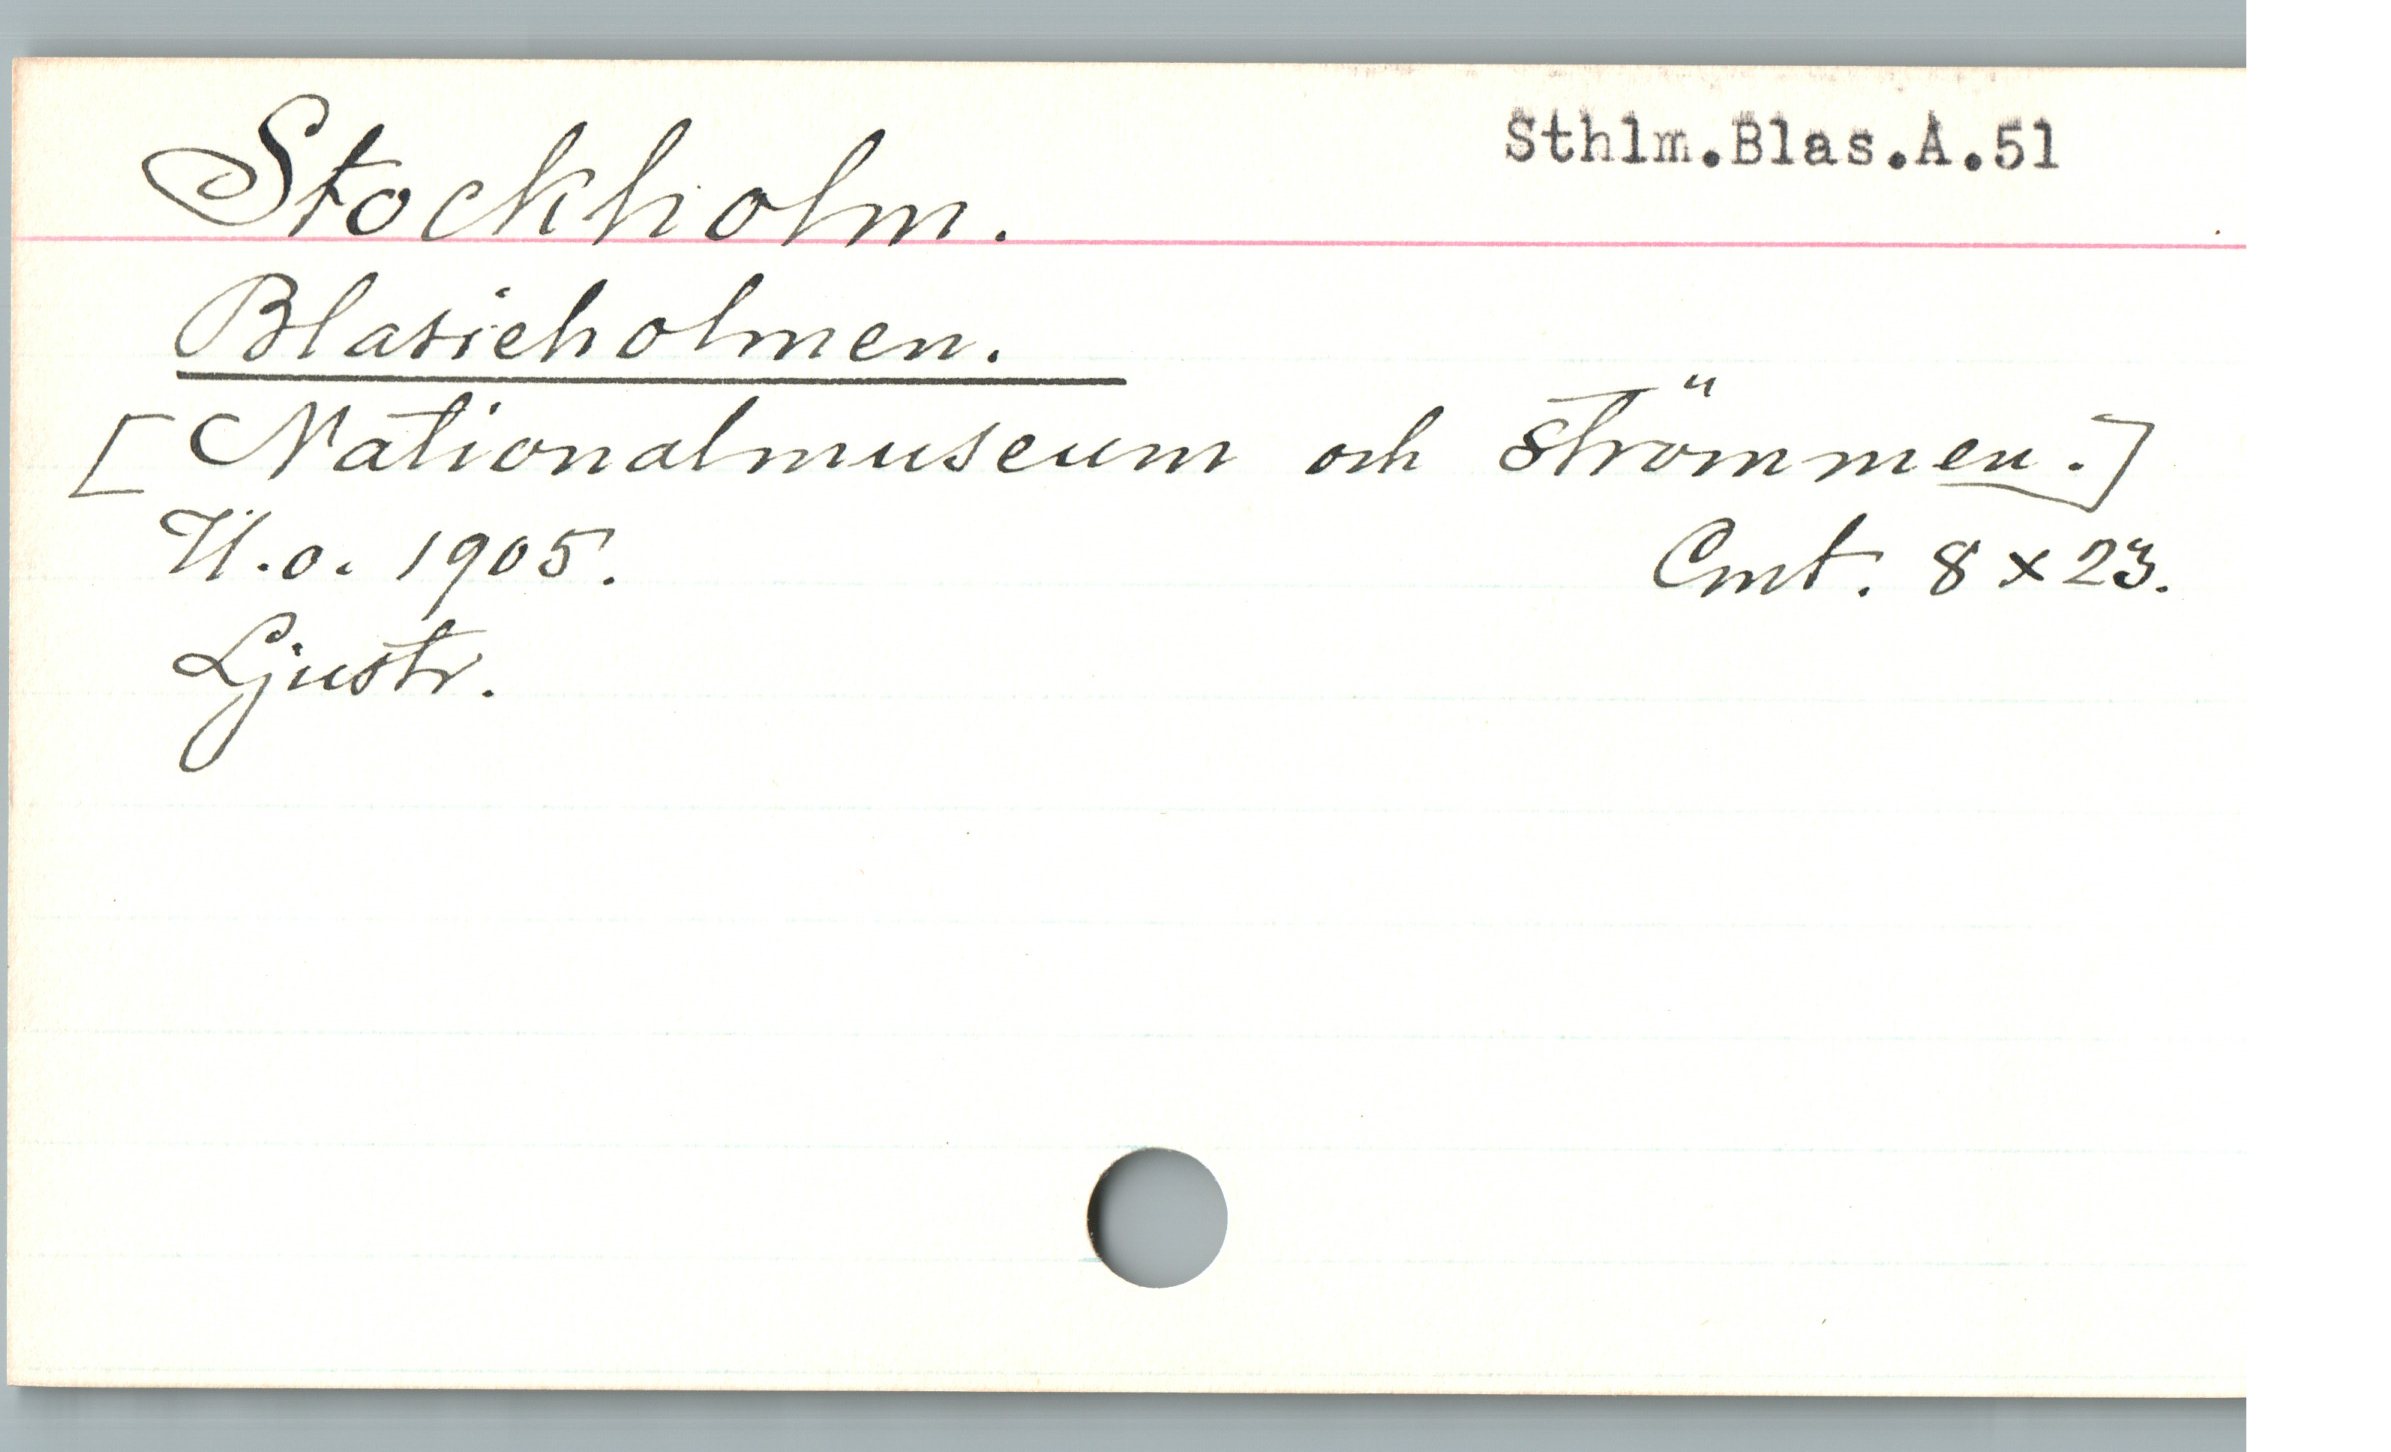 Stockholm. Sthlm.Blas.A.51
Blasieholmen.
[Nationalmuseum och Strömmen.]
U.o. 1905. Cmt. 8 x 23.
Ljustr.